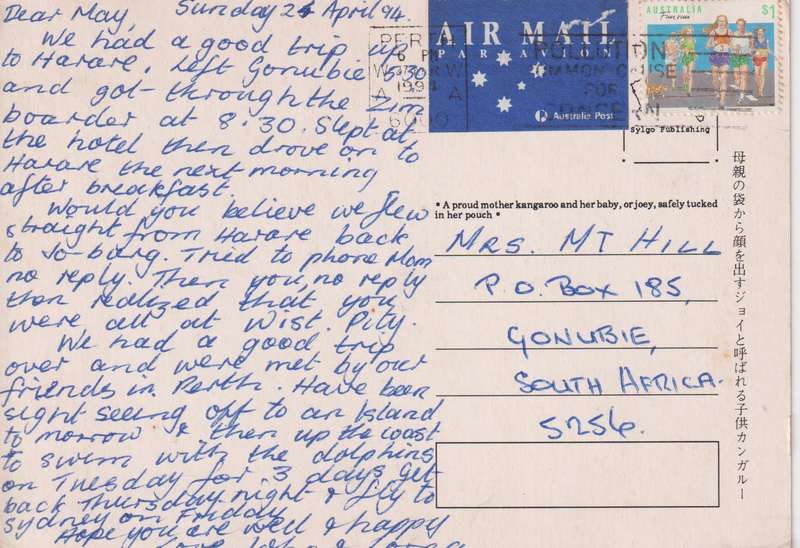 Dear May, Sunday 24 April 94.
We had a good trip up
to Harare, left Gonubie 5.30
and got through the Zim
boarder at 8.30. Slept at
the hotel then drove on to
Harare the next morning
after breakfast.
Would you believe we flew
straight from Harare back
to Jo-burg. Tried to phone Mom
no reply. Then you, no reply
then realized that you
were all at Wist. Pity.
We had a good trip
over and were met by our
friends in Perth. Have been
sight seeing off to an Island
to morrow & then up the coast
to swim with the dolphins
on Tuesday for 3 days get
back Thursday night & fly to
Sydney on Friday
Hope you are well & happy
AIR MAIL
PAR AVION
Australia Post
AUSTRALIA
$1
Fun run
PERTH
6 PM
1994
W A
6000
POLLUTION
COMMON CAUSE
FOR
CONCERN
Sylgo Publishing
* A proud mother kangaroo and her baby, or joey, safely tucked
in her pouch *
MRS. MT HILL
P.O. BOX 185,
GONUBIE,
SOUTH AFRICA.
5256.
母親の袋から顔を出すジョイと呼ばれる子供カンガルー